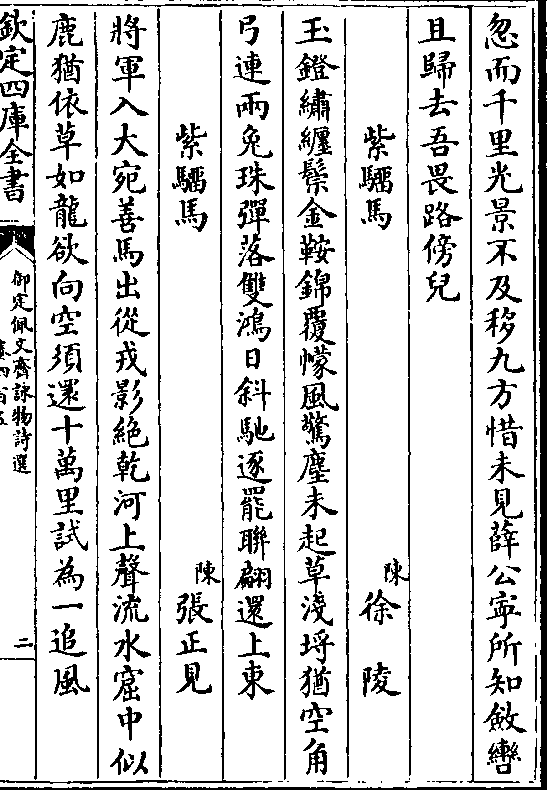 忽而千里光景不及移九方惜未見薛公寜所知斂轡
且歸去吾畏路傍兒
紫騮馬 陳 徐陵
玉鐙繡纏鬃金鞍錦覆幪風驚塵未起草淺埒猶空角
弓連兩兔珠彈落雙鴻日斜馳逐罷聯翩還上東
紫騮馬 陳 張正見
將軍入大宛善馬出從戎影絶乾河上聲流水窟中似
鹿猶依草如龍欲向空須還十萬里試為一追風
欽定四庫全書
御定佩文齋詠物詩選
卷四百五
二